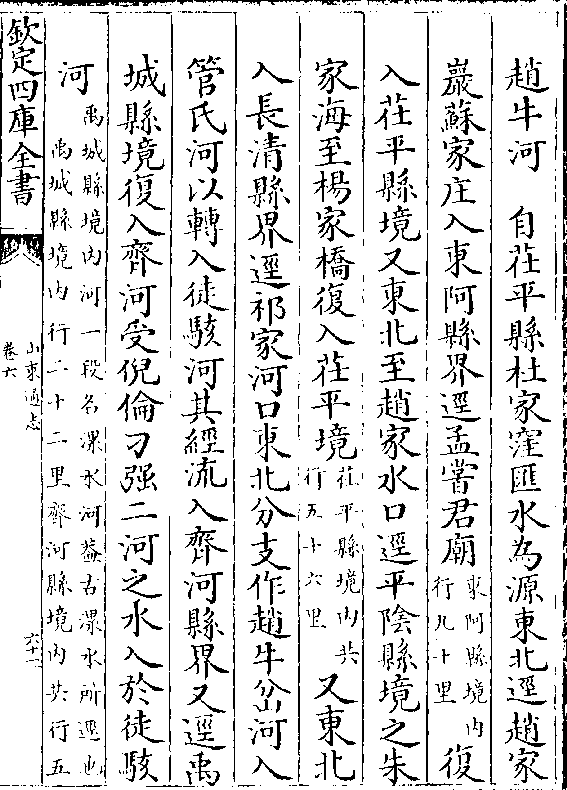 趙牛河　自茌平縣杜家窪匯水為源東北逕趙家
巖蘇家庄入東阿縣界逕孟嘗君廟東阿縣境内行九十里復
入茌平縣境又東北至趙家水口逕平陰縣境之朱
家海至楊家橋復入茌平境茌平縣境内共行五十六里又東北
入長清縣界逕祁家河口東北分支作趙牛岔河入
管氏河以轉入徒駭河其經流入齊河縣界又逕禹
城縣境復入齊河受倪倫刁强二河之水入於徒駭
河禹城縣境内河一段名漯水河葢古漯水所逕也禹城縣境内行二十二里齊河縣境内共行五
欽定四庫全書
山東通志
卷六
六十二